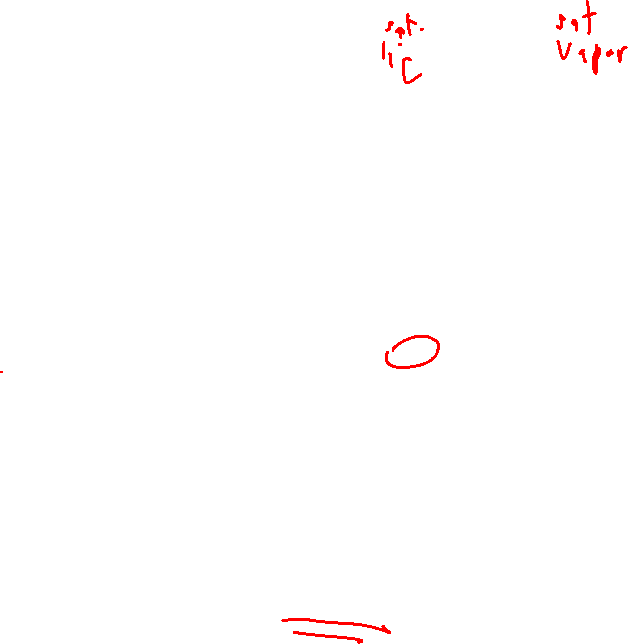 sat.
liq
sat
vapor